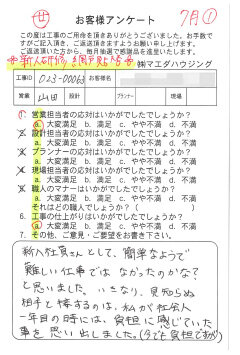 世
お客様アンケート
7月①
この度は工事のご用命を頂きありがとうございました。お手数で
すがご記入頂き、ご返送頂きますようお願い申し上げます。
ご返送頂いた方から、毎月抽選で感謝品を進呈いたします。
㈱マエダハウジング
工事ID 023-00063
営業 山田 設計 プランナー 現場
1. 営業担当者の応対はいかがでしたでしょうか？
a. 大変満足 b. 満足 c. やや不満 d. 不満
2. 設計担当者の応対はいかがでしたでしょうか？
a. 大変満足 b. 満足 c. やや不満 d. 不満
3. プランナーの応対はいかがでしたでしょうか？
a. 大変満足 b. 満足 c. やや不満 d. 不満
4. 現場担当者の応対はいかがでしたでしょうか？
a. 大変満足 b. 満足 c. やや不満 d. 不満
5. 職人のマナーはいかがでしたでしょうか？
a. 大変満足 b. 満足 c. やや不満 d. 不満
それはどの職人でしょうか？（ ）
6. 工事の仕上がりはいかがでしたでしょうか？
a. 大変満足 b. 満足 c. やや不満 d. 不満
7. その他、ご意見・ご要望をお書き下さい。
新入社員さんとして、簡単なようで
難しい仕事ではなかったのかなぁ
と思いました。いきなり、見知らぬ
相手と接するのは、私が社会人
一年目の時には、負担に感じていた
事を思い出しました。(今でも負担ですが)